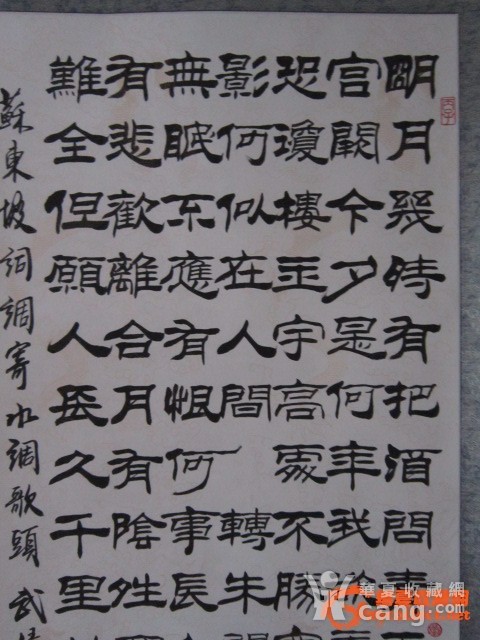 明月幾時有把酒問青
宮闕今夕是何年我欲
恐瓊樓玉宇高處不勝
影何似在人間 轉朱
無眠不應有恨何事長
有悲歡離合月有陰晴
難全但願人長久千里
蘇東坡詞調寄水調歌頭 武
丙子
華夏收藏網
cang.com